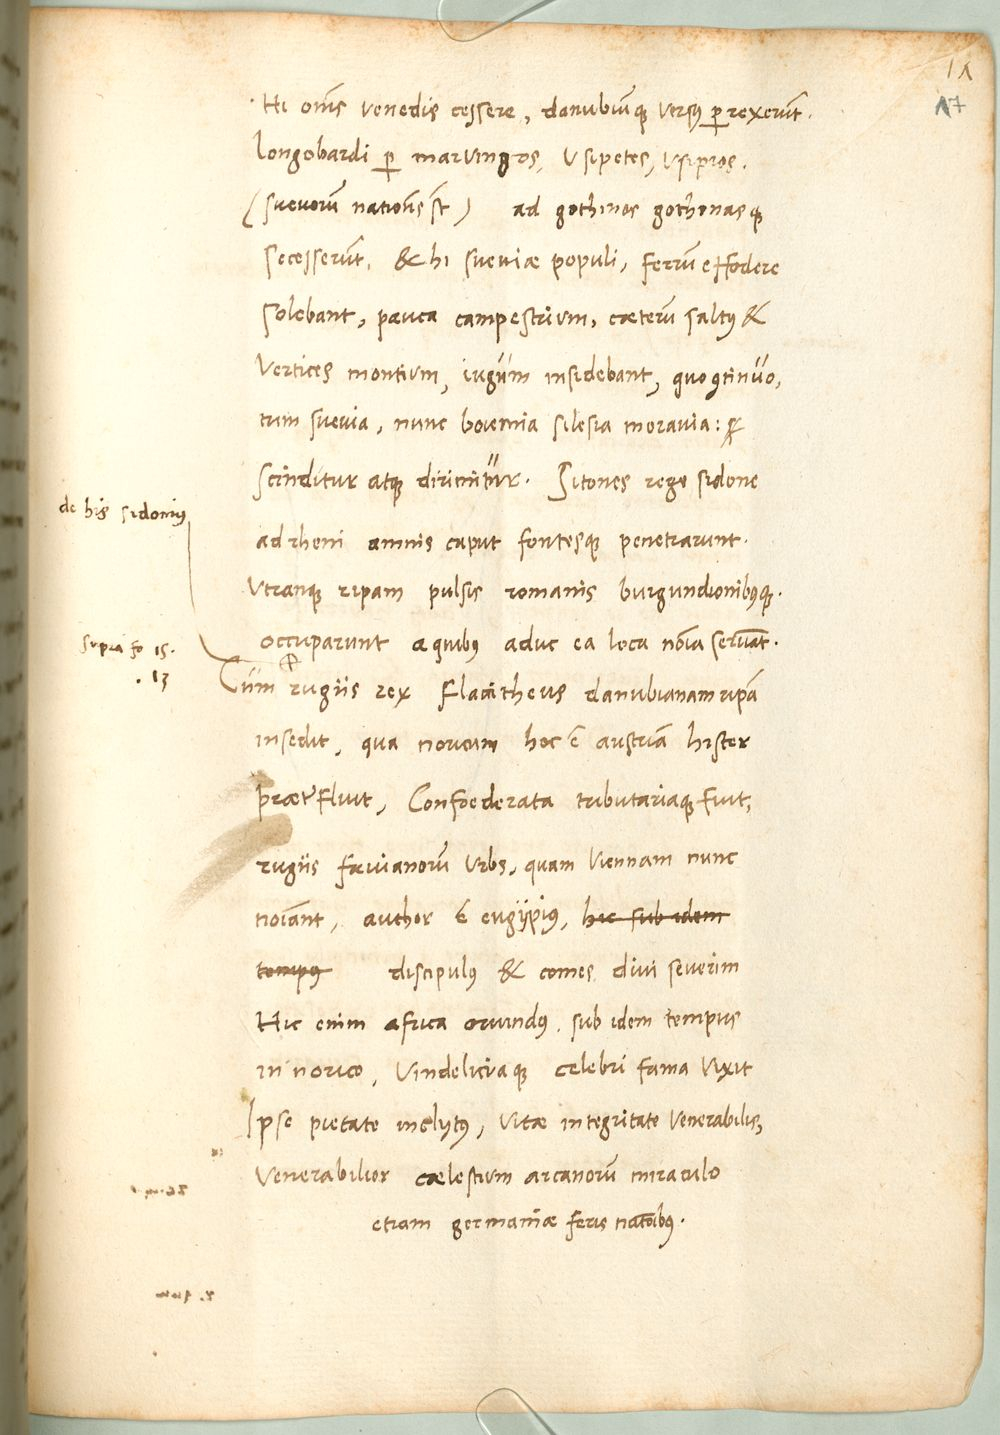 11
17
Hi om̄s venedis cessere, danubiūq versꝰ ꝑrexerūt.
Longobardi ꝑ marvingos, Vsipetes, Vsipros.
(suevorū nationēs st̄) ad gothinos gothonasq
Secesserūt, & hi sueviæ populi, ferrū effodere
Solebant, pauca campestrium, cæterū saltꝰ &
Vertices montium, iugum insidebant, quo ꝯtinuo,
tum suevia, nunc boiemia silesia moravia:
Scinditur atq dirimitur. Sitones rege sidone
ad rheni amnis caput fontesq penetrarunt.
Vtranq ripam pulsis romanis burgundionibꝰq.
occuparunt a quibus aduc ea loca nōīa servāt.
de his sidoniꝰ
supra fo 15.
. 13
Cum rugiis rex Flacitheus danubianam ripā
insedit, qua noricum hoc ē austriā hister
præterfluit, Confoederata tributariaq fuit,
rugiis faviianorū Vrbs, quam Viennam nunc
noīant, author ē eugippiꝰ, hic sub idem
tempꝰ discipulꝰ & comes divi severini
Hic enim africa oriundꝰ, sub idem tempus
in norico, Vindeliciaq celebri fama vixit
Ipse pietate inclytꝰ, vitæ integritate venerabilis,
Venerabilior cælestium arcanorū miraculo
etiam germaniæ feris natōībꝰ.